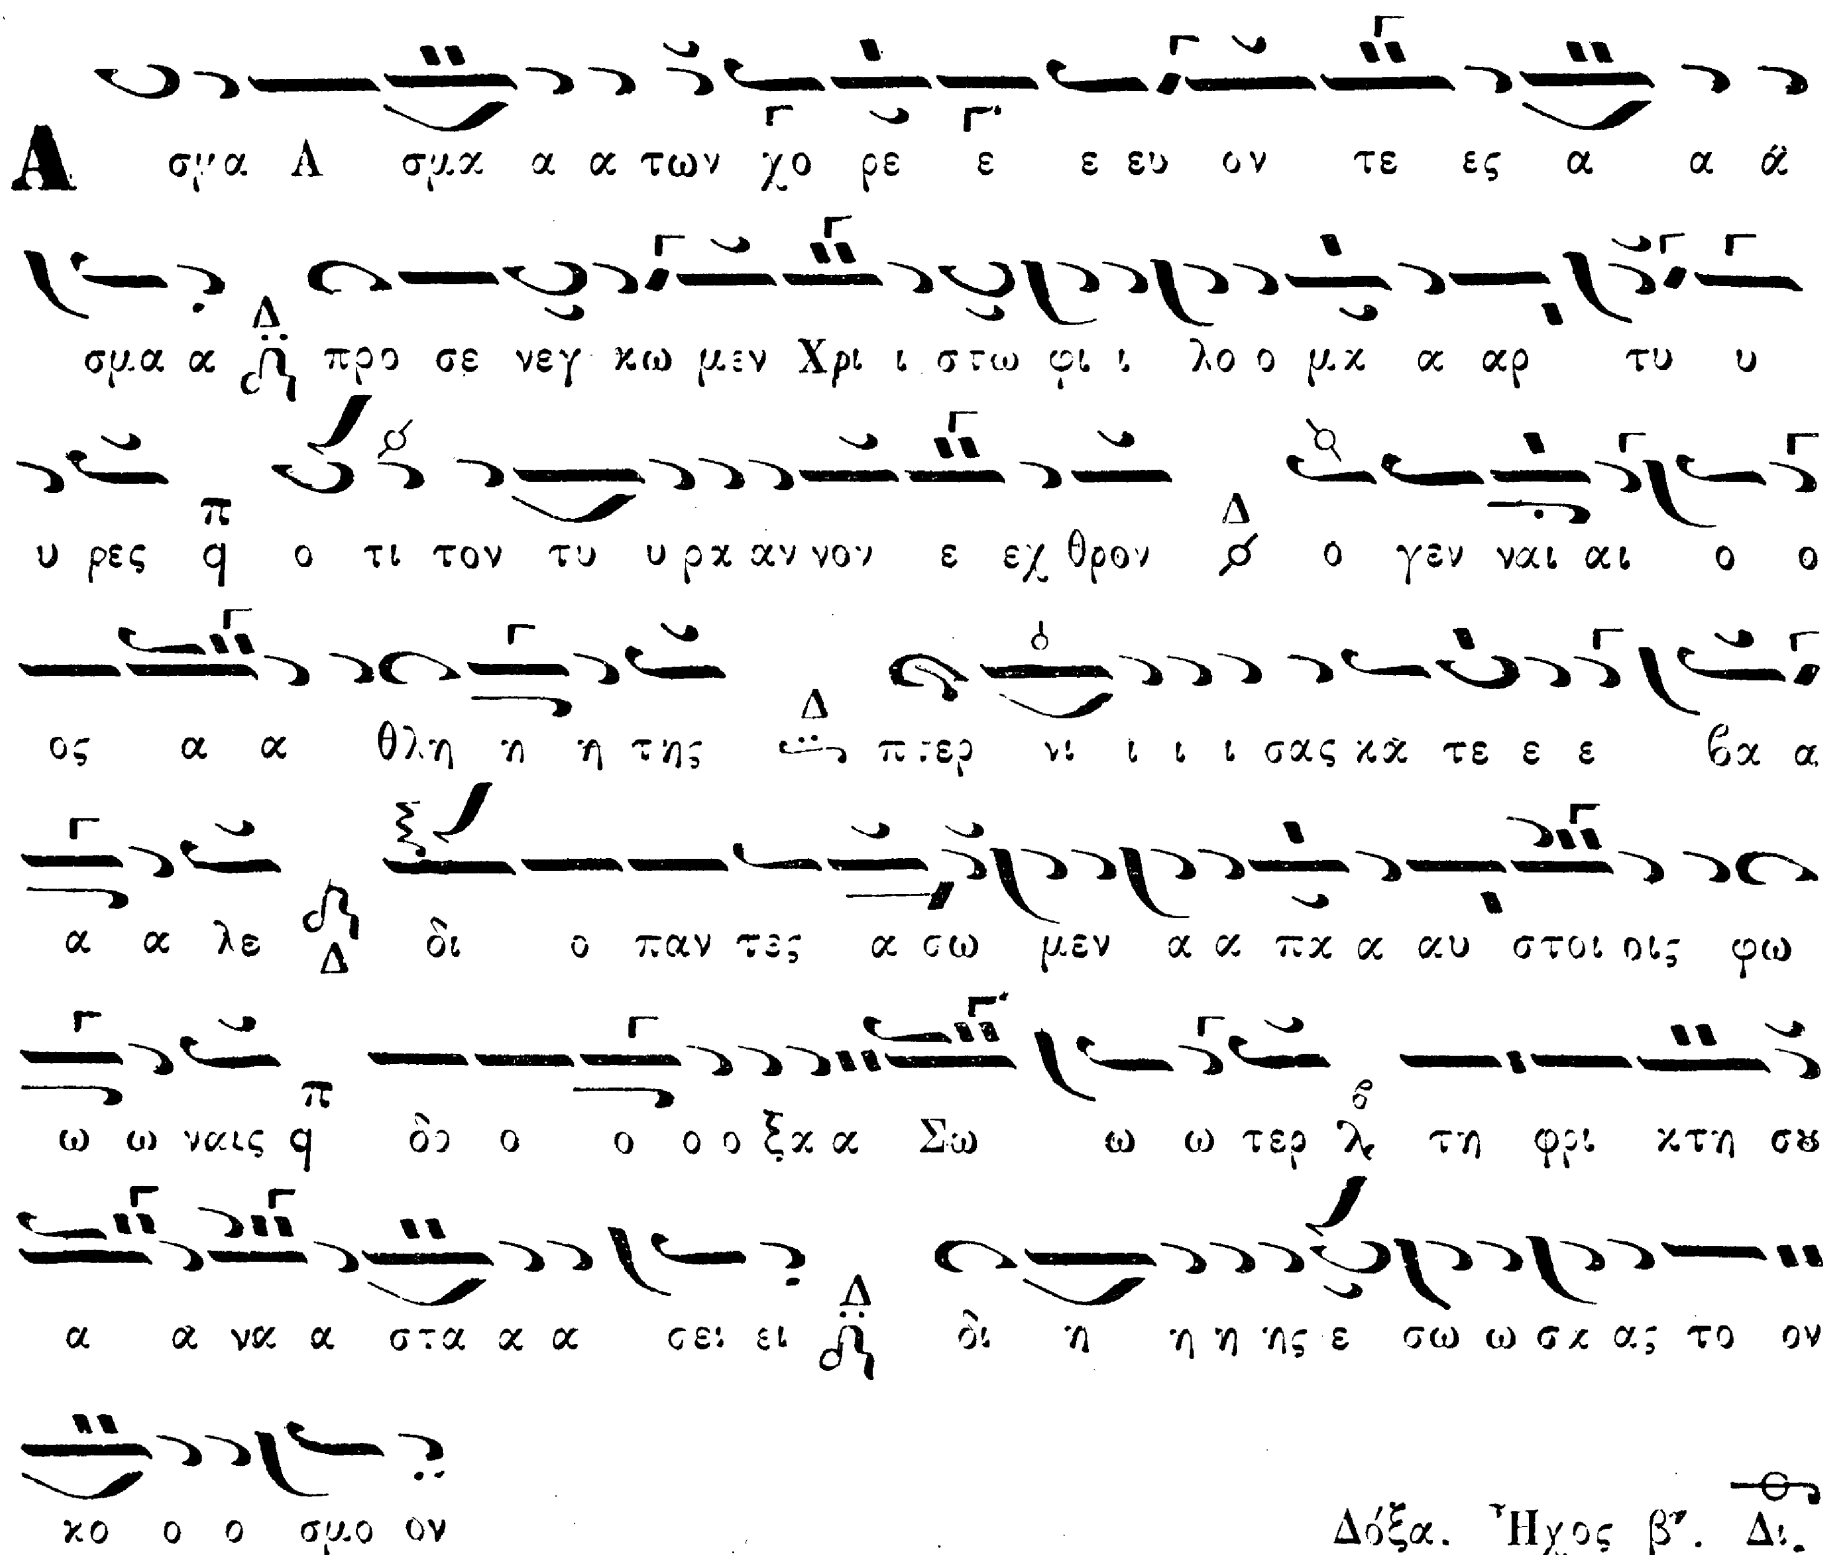 Α σμα Α σμα α α των χο ρε ε ε ευ ον τε ες α α α
σμα α Δ προ σε νεγ κω μεν Χρι ι στω φι ι λο ο μα α αρ τυ υ
υ ρες π q ο τι τον τυ υ ρα αν νον ε εχ θρον Δ ο γεν ναι αι ο ο
ος α α θλη η η της Δ πτερ νι ι ι ι σας κα τε ε ε βα α
α α λε Δ δι ο παν τες α σω μεν α α πα α αυ στοι οις φω
ω ω ναις π q δο ο ο ο ο ξα α Σω ω ω τερ β λ τη φρι κτη σȣ
α α να α στα α α σει ει Δ δι η η η ης ε σω ω σα ας το ον
κο ο ο σμο ον Δόξα. Ἦχος β'. Δι.